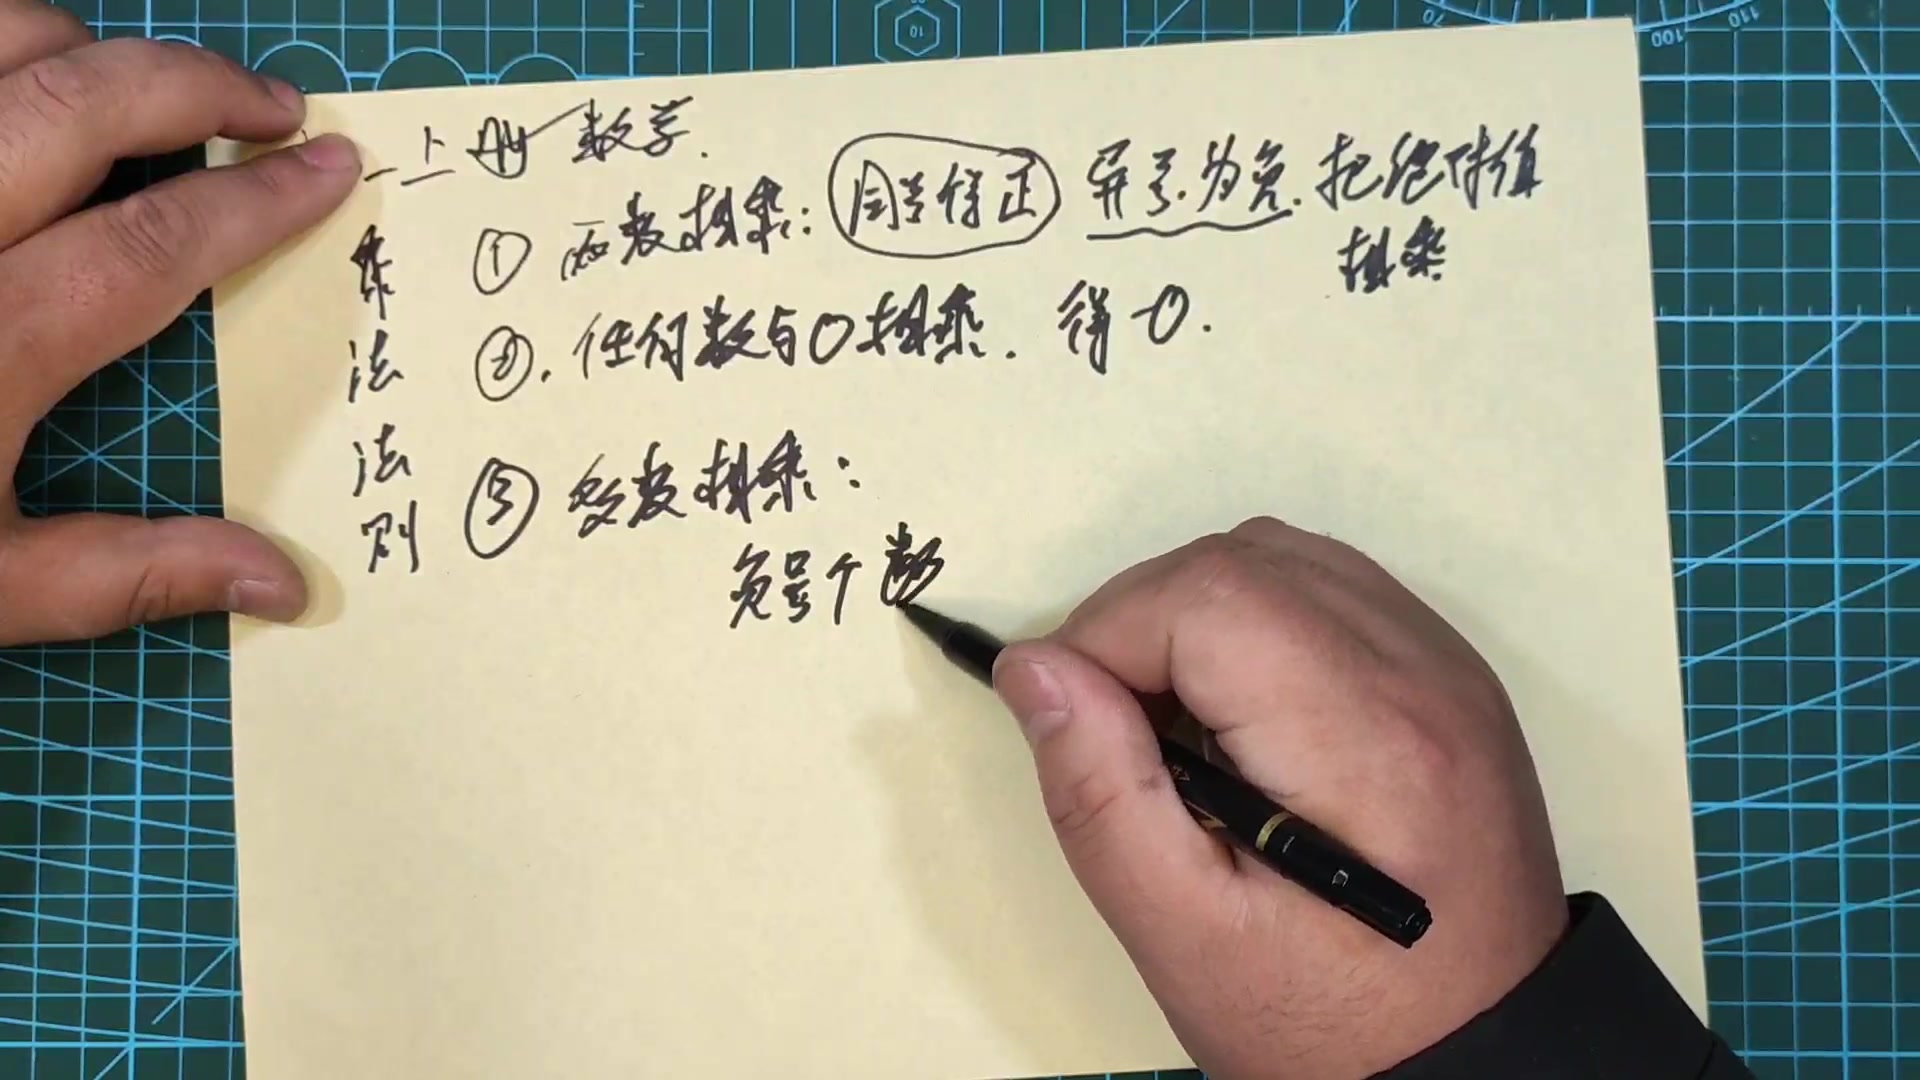 上册数学.
乘法法则
① 两数相乘: 同号得正 异号为负. 把绝对值
相乘
②. 任何数与0相乘. 得0.
③ 多数相乘:
负号个数
10
70
100
110